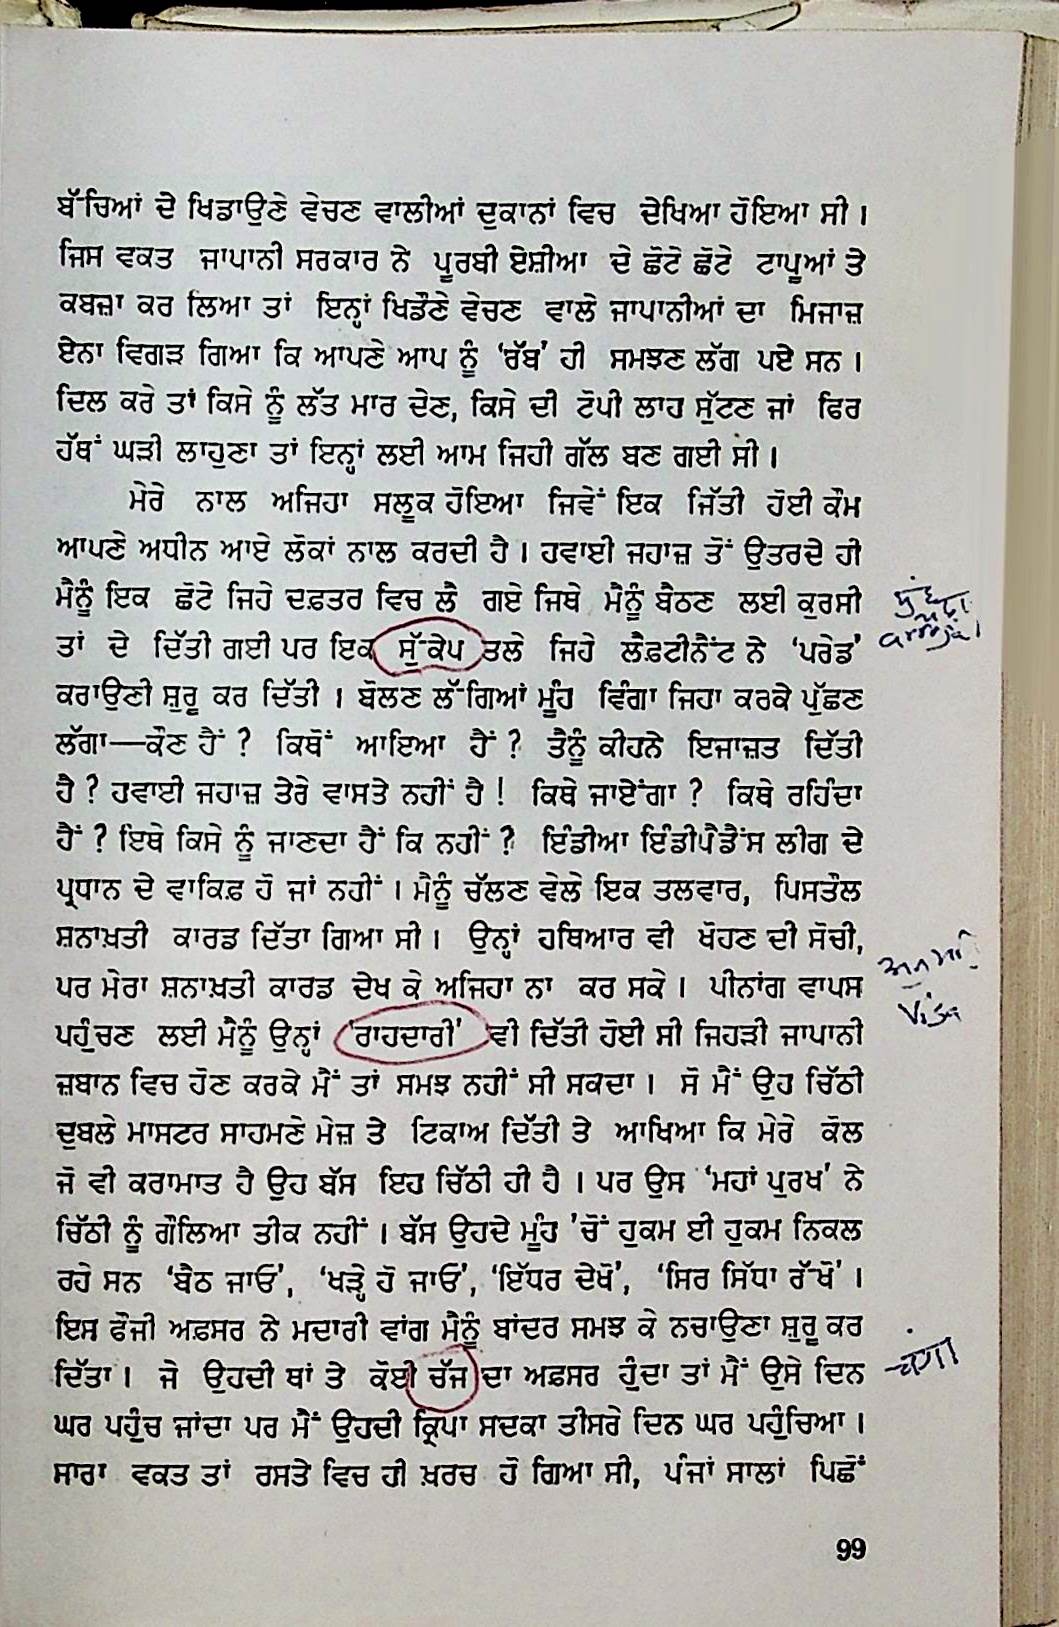 ਬੱਚਿਆਂ ਦੇ ਖਿਡਾਉਣੇ ਵੇਚਣ ਵਾਲੀਆਂ ਦੁਕਾਨਾਂ ਵਿਚ ਦੇਖਿਆ ਹੋਇਆ ਸੀ।
ਜਿਸ ਵਕਤ ਜਾਪਾਨੀ ਸਰਕਾਰ ਨੇ ਪੂਰਬੀ ਏਸ਼ੀਆ ਦੇ ਛੋਟੇ ਛੋਟੇ ਟਾਪੂਆਂ ਤੇ
ਕਬਜ਼ਾ ਕਰ ਲਿਆ ਤਾਂ ਇਨ੍ਹਾਂ ਖਿਡੌਣੇ ਵੇਚਣ ਵਾਲੇ ਜਾਪਾਨੀਆਂ ਦਾ ਮਿਜਾਜ਼
ਏਨਾ ਵਿਗੜ ਗਿਆ ਕਿ ਆਪਣੇ ਆਪ ਨੂੰ ‘ਰੱਬ’ ਹੀ ਸਮਝਣ ਲੱਗ ਪਏ ਸਨ।
ਦਿਲ ਕਰੇ ਤਾਂ ਕਿਸੇ ਨੂੰ ਲੱਤ ਮਾਰ ਦੇਣ, ਕਿਸੇ ਦੀ ਟੋਪੀ ਲਾਹ ਸੁੱਟਣ ਜਾਂ ਫਿਰ
ਹੱਥਾਂ ਘੜੀ ਲਾਹੁਣਾ ਤਾਂ ਇਨ੍ਹਾਂ ਲਈ ਆਮ ਜਿਹੀ ਗੱਲ ਬਣ ਗਈ ਸੀ।
ਮੇਰੇ ਨਾਲ ਅਜਿਹਾ ਸਲੂਕ ਹੋਇਆ ਜਿਵੇਂ ਇਕ ਜਿੱਤੀ ਹੋਈ ਕੌਮ
ਆਪਣੇ ਅਧੀਨ ਆਏ ਲੋਕਾਂ ਨਾਲ ਕਰਦੀ ਹੈ। ਹਵਾਈ ਜਹਾਜ਼ ਤੋਂ ਉਤਰਦੇ ਹੀ
ਮੈਨੂੰ ਇਕ ਛੋਟੇ ਜਿਹੇ ਦਫ਼ਤਰ ਵਿਚ ਲੈ ਗਏ ਜਿਥੇ ਮੈਨੂੰ ਬੈਠਣ ਲਈ ਕੁਰਸੀ
ਤਾਂ ਦੇ ਦਿੱਤੀ ਗਈ ਪਰ ਇਕ ਸੁੱਕੇਪ ਤਲੇ ਜਿਹੇ ਲੈਫ਼ਟੀਨੈਂਟ ਨੇ ‘ਪਰੇਡ’
ਕਰਾਉਣੀ ਸ਼ੁਰੂ ਕਰ ਦਿੱਤੀ। ਬੋਲਣ ਲੱਗਿਆਂ ਮੂੰਹ ਵਿੰਗਾ ਜਿਹਾ ਕਰਕੇ ਪੁੱਛਣ
ਲੱਗਾ—ਕੌਣ ਹੈਂ ? ਕਿਥੋਂ ਆਇਆ ਹੈਂ ? ਤੈਨੂੰ ਕੀਹਨੇ ਇਜਾਜ਼ਤ ਦਿੱਤੀ
ਹੈ ? ਹਵਾਈ ਜਹਾਜ਼ ਤੇਰੇ ਵਾਸਤੇ ਨਹੀਂ ਹੈ ! ਕਿਥੇ ਜਾਏਂਗਾ ? ਕਿਥੇ ਰਹਿੰਦਾ
ਹੈਂ ? ਇਥੇ ਕਿਸੇ ਨੂੰ ਜਾਣਦਾ ਹੈਂ ਕਿ ਨਹੀਂ ? ਇੰਡੀਆ ਇੰਡੀਪੈਂਡੈਂਸ ਲੀਗ ਦੇ
ਪ੍ਰਧਾਨ ਦੇ ਵਾਕਿਫ਼ ਹੋ ਜਾਂ ਨਹੀਂ। ਮੈਨੂੰ ਚੱਲਣ ਵੇਲੇ ਇਕ ਤਲਵਾਰ, ਪਿਸਤੌਲ
ਸ਼ਨਾਖ਼ਤੀ ਕਾਰਡ ਦਿੱਤਾ ਗਿਆ ਸੀ। ਉਨ੍ਹਾਂ ਹਥਿਆਰ ਵੀ ਖੋਹਣ ਦੀ ਸੋਚੀ,
ਪਰ ਮੇਰਾ ਸ਼ਨਾਖ਼ਤੀ ਕਾਰਡ ਦੇਖ ਕੇ ਅਜਿਹਾ ਨਾ ਕਰ ਸਕੇ। ਪੀਨਾਂਗ ਵਾਪਸ
Visa
ਪਹੁੰਚਣ ਲਈ ਮੈਨੂੰ ਉਨ੍ਹਾਂ ‘ਰਾਹਦਾਰੀ’ ਵੀ ਦਿੱਤੀ ਹੋਈ ਸੀ ਜਿਹੜੀ ਜਾਪਾਨੀ
ਜ਼ਬਾਨ ਵਿਚ ਹੋਣ ਕਰਕੇ ਮੈਂ ਤਾਂ ਸਮਝ ਨਹੀਂ ਸੀ ਸਕਦਾ। ਸੋ ਮੈਂ ਉਹ ਚਿੱਠੀ
ਦੁਬਲੇ ਮਾਸਟਰ ਸਾਹਮਣੇ ਮੇਜ਼ ਤੇ ਟਿਕਾਅ ਦਿੱਤੀ ਤੇ ਆਖਿਆ ਕਿ ਮੇਰੇ ਕੋਲ
ਜੋ ਵੀ ਕਰਾਮਾਤ ਹੈ ਉਹ ਬੱਸ ਇਹ ਚਿੱਠੀ ਹੀ ਹੈ। ਪਰ ਉਸ ‘ਮਹਾਂ ਪੁਰਖ’ ਨੇ
ਚਿੱਠੀ ਨੂੰ ਗੌਲਿਆ ਤੀਕ ਨਹੀਂ। ਬੱਸ ਉਹਦੇ ਮੂੰਹ ’ਚੋਂ ਹੁਕਮ ਈ ਹੁਕਮ ਨਿਕਲ
ਰਹੇ ਸਨ ‘ਬੈਠ ਜਾਓ’, ‘ਖੜ੍ਹੇ ਹੋ ਜਾਓ’, ‘ਇੱਧਰ ਦੇਖੋ’, ‘ਸਿਰ ਸਿੱਧਾ ਰੱਖੋ’।
ਇਸ ਫੌਜੀ ਅਫ਼ਸਰ ਨੇ ਮਦਾਰੀ ਵਾਂਗ ਮੈਨੂੰ ਬਾਂਦਰ ਸਮਝ ਕੇ ਨਚਾਉਣਾ ਸ਼ੁਰੂ ਕਰ
ਦਿੱਤਾ। ਜੇ ਉਹਦੀ ਥਾਂ ਤੇ ਕੋਈ ਚੱਜ ਦਾ ਅਫ਼ਸਰ ਹੁੰਦਾ ਤਾਂ ਮੈਂ ਉਸੇ ਦਿਨ
ਚੰਗਾ
ਘਰ ਪਹੁੰਚ ਜਾਂਦਾ ਪਰ ਮੈਂ ਉਹਦੀ ਕ੍ਰਿਪਾ ਸਦਕਾ ਤੀਸਰੇ ਦਿਨ ਘਰ ਪਹੁੰਚਿਆ।
ਸਾਰਾ ਵਕਤ ਤਾਂ ਰਸਤੇ ਵਿਚ ਹੀ ਖ਼ਰਚ ਹੋ ਗਿਆ ਸੀ, ਪੰਜਾਂ ਸਾਲਾਂ ਪਿਛੋਂ
99